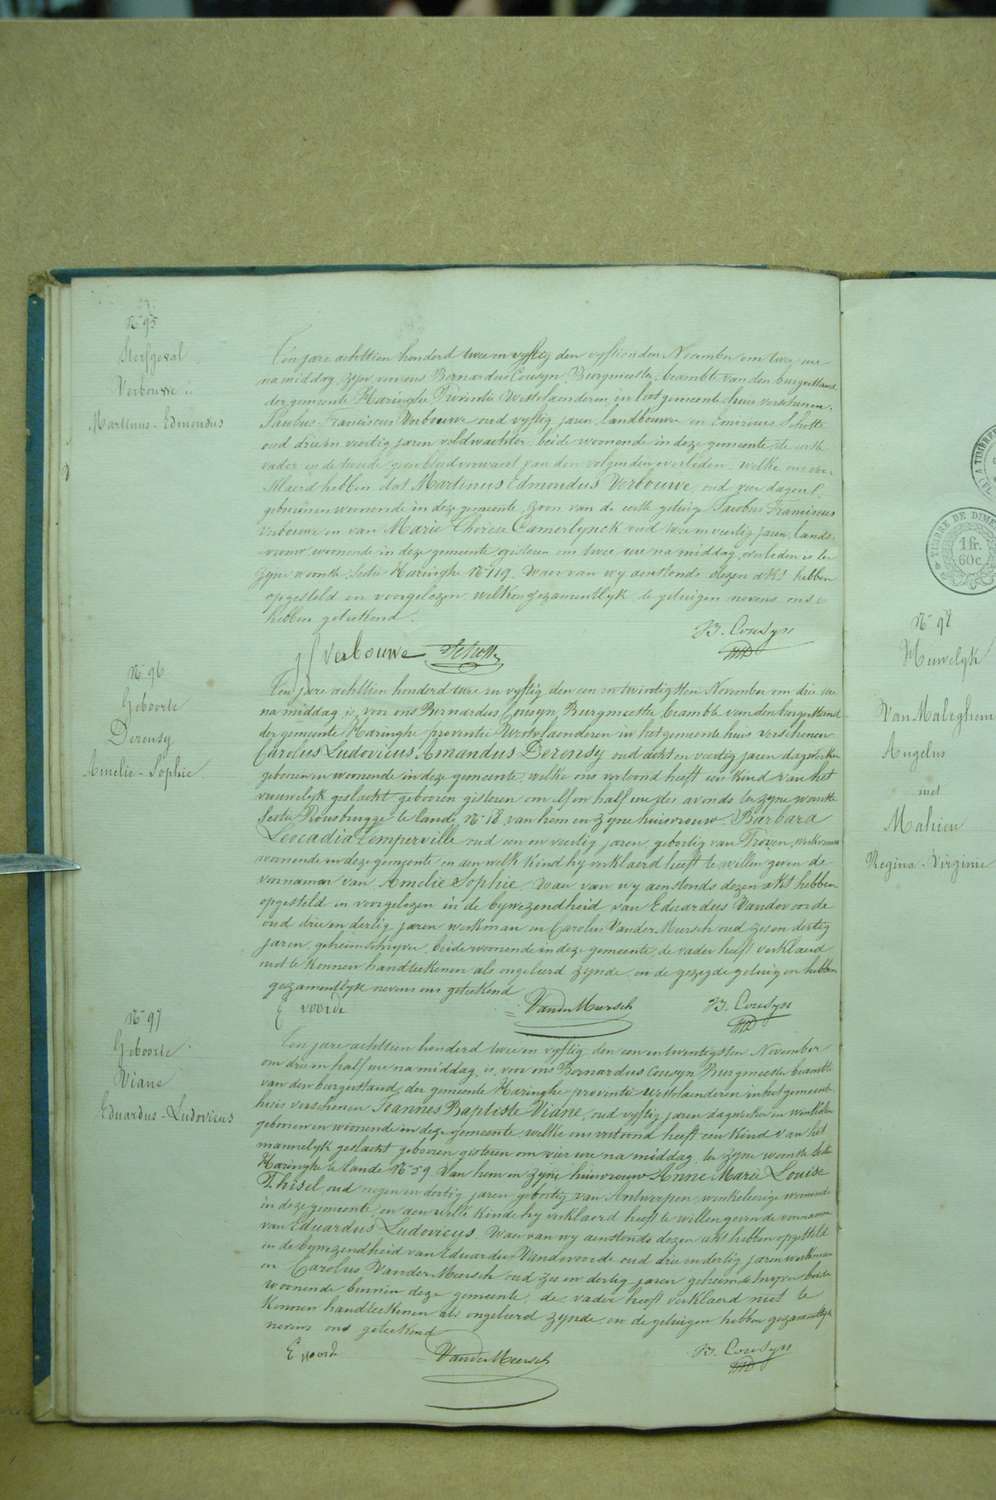 N° 95
Sterfgeval
Verbouwe
Martinus-Edmondus
Een jare achttien honderd twee en vyftig den vyftienden November om twee ure
namiddag zyn voor ons Bernardus Cousyn, Burgmeester beambte van den burgerstand
der gemeente Haringhe Provintie Westvlaenderen in het gemeente huis verschenen
Jacobus Franciscus Verbouwe oud vyftig jaren, Landbouwer en Schotte
oud drie en veertig jaren veldwachter beide wonende in deze gemeente, de eerste
vader en de tweede goeden van den volgenden overleden, welke ons ver-
klaerd hebben dat Martinus Edmondus Verbouwe, oud vier dagen
geboren en wonende in deze gemeente zoon van de eerste getuig Jacobus Franciscus
Verbouwe en van Marie Therese Camerlynck oud twee en veertig jaren, lands-
vrouw wonende in deze gemeente gisteren om twee ure namiddag, overleden is ter
zyne woonste Sectie Haringhe N° 119. Waer van wy aenstonds dezen akt hebben
opgesteld en voorgelezen welken gezamentlyk de getuigen nevens ons
hebben geteekend.
J F Verbouwe Schotte B. Cousyn
N° 96
Geboorte
Derensy
Amelie-Sophie
Een jare achttien honderd twee en vyftig den een en twintigsten November om drie ure
na middag is voor ons Bernardus Cousyn, Burgmeester beambte van den burgerstand
der gemeente Haringhe provintie Westvlaenderen in het gemeente huis verschenen
Carolus Ludovicus Amandus Derensy oud acht en veertig jaren dagwerker
geboren en wonende in deze gemeente, welke ons vertoond heeft een kind van het
vrouwelyk geslacht, geboren gisteren om elf en half ure des avonds ter zyne woonste
Sectie Rousbrugge te lande N° 18 van hem en zyne huisvrouw Barbara
Leocadia Temperville oud een en veertig jaren, geboortig van Proven, werkvrouw
wonende in deze gemeente en aen welk kind hy verklaerd heeft te willen geven de
voornamen van Amelie Sophie. Waer van wy aenstonds dezen akt hebben
opgesteld en voorgelezen in de bywezendheid van Eduardus Vandevoorde
oud drie en dertig jaren werkman en Carolus Vander Meersch oud zes en dertig
jaren, geheimschryver, beide wonende in deze gemeente, de vader heeft verklaerd
niet te konnen handteekenen als ongeleerd zynde, en de gezegde getuigen hebben
gezamentlyk nevens ons geteekend
E voorde VanderMeersch B. Cousyn
N° 97
Geboorte
Viane
Eduardus-Ludovicus
Een jare achttien honderd twee en vyftig den een en twintigsten November
om drie en half ure na middag, is voor ons Bernardus Cousyn Burgmeester beambte
van den burgerstand der gemeente Haringhe provintie Westvlaenderen in het gemeente
huis verschenen Joannes Baptiste Viane, oud vyftig jaren dagwerker en winkelier
geboren en wonende in deze gemeente, welke ons vertoond heeft een kind van het
mannelyk geslacht geboren gisteren om vier ure na middag ter zyne woonste Sectie
Haringhe te lande N° 59 van hem en zyne huisvrouw Anne Marie Louise
Thisel, oud negen en dertig jaren geboortig van Antwerpen, winkelierige wonende
in deze gemeente, en aen welke kinde hy verklaerd heeft te willen geven de voornamen
van Eduardus Ludovicus. Waer van wy aenstonds dezen akt hebben opgesteld
in de bywezendheid van Eduardus Vandevoorde oud drie en dertig jaren werkman
en Carolus VanderMeersch oud zes en dertig jaren geheimschryver beide
wonende binnen deze gemeente, de vader heeft verklaerd niet te
konnen handteekenen als ongeleerd zynde, en de getuigen hebben gezamentlyk
nevens ons geteekend
E voorde VanderMeersch B. Cousyn
N° 98
Huwelyk
Van Maleghem
Angelus
met
Mahieu
Regina-Virginie
TIMBRE DE DIME
1 fr.
60 c.